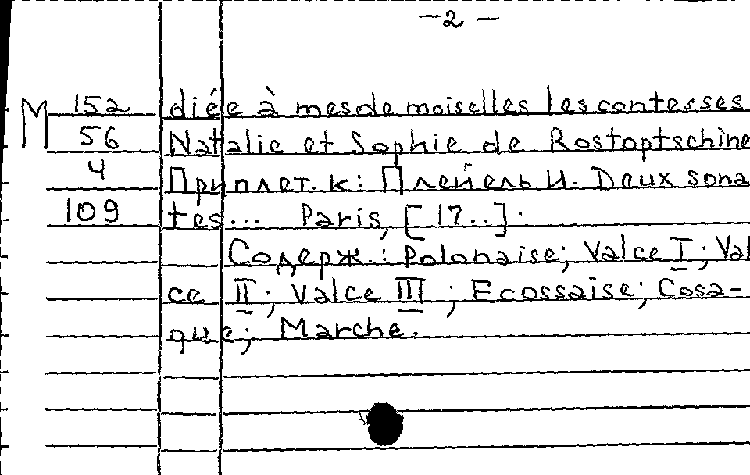 -2-
M 152 diée à mesde moiselles les contesses
56 Natalie et Sophie de Rostoptschine
4 Приплет. к: Плейель И. Deux sona
109 tes... Paris, [17..].
Содерж.: Polonaise; Valce I; Val
ce II; Valce III; Ecossaise; Cosa-
que; Marche.